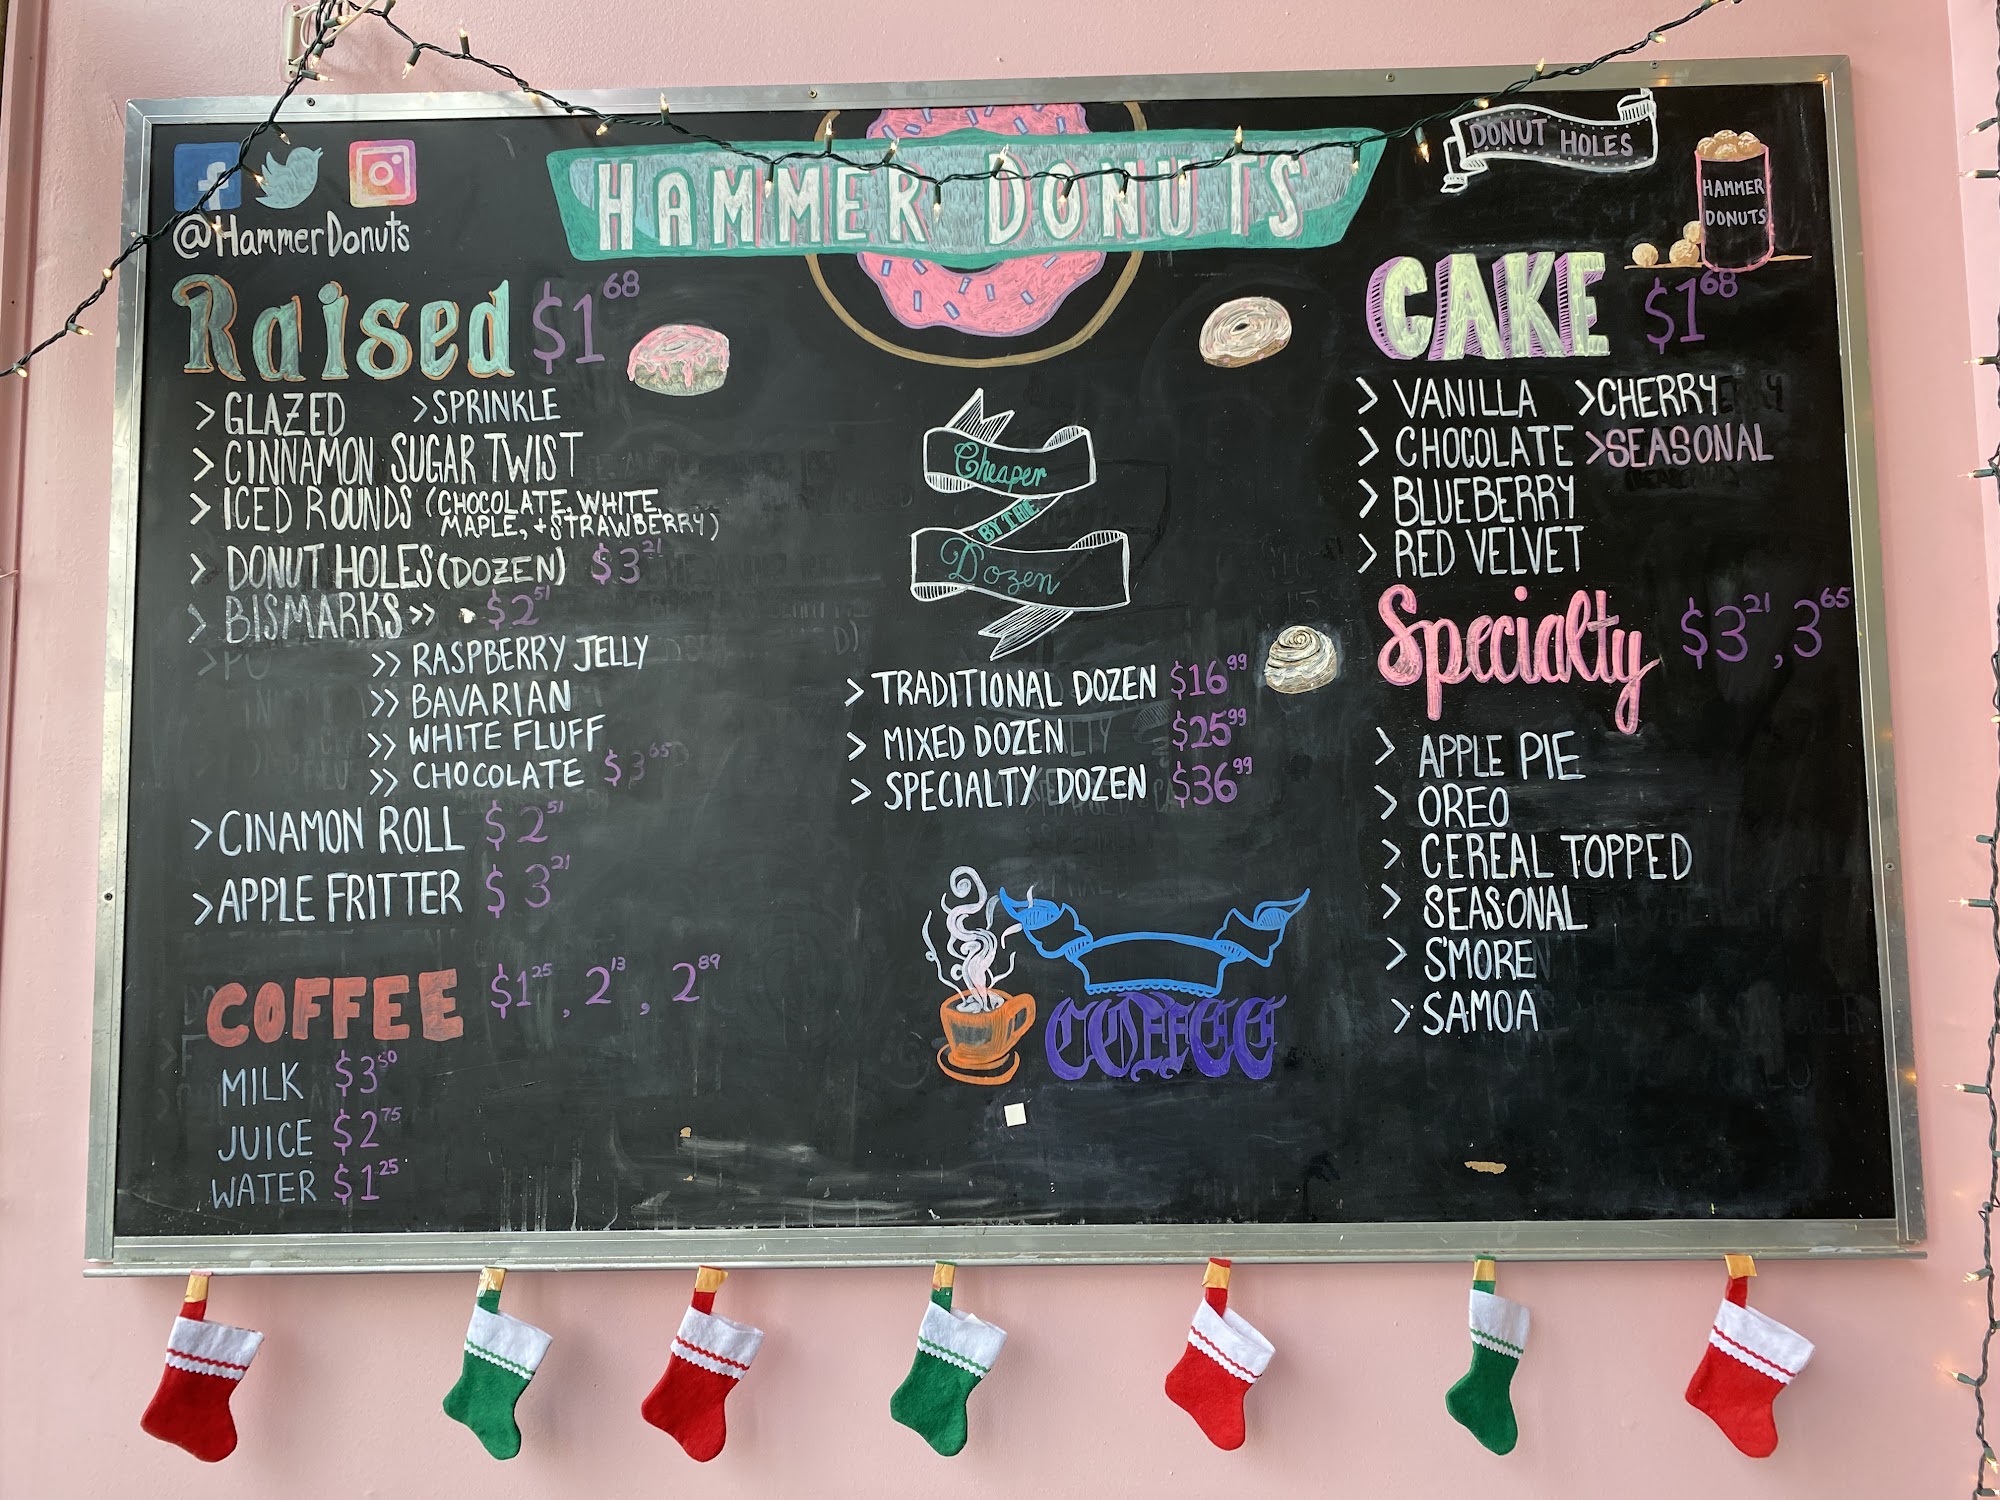 HAMMER DONUTS
@HammerDonuts
Raised $1 68
> GLAZED > SPRINKLE
> CINNAMON SUGAR TWIST
> ICED ROUNDS (CHOCOLATE, WHITE,
MAPLE, + STRAWBERRY)
> DONUT HOLES (DOZEN) $3 21
> BISMARKS >> $2 51
>> RASPBERRY JELLY
>> BAVARIAN
>> WHITE FLUFF
>> CHOCOLATE $3 65
> CINAMON ROLL $2 51
> APPLE FRITTER $3 21
COFFEE $1 25, 2 13, 2 89
MILK $3 50
JUICE $2 75
WATER $1 25
Cheaper
BY THE
Dozen
> TRADITIONAL DOZEN $16 99
> MIXED DOZEN $25 99
> SPECIALTY DOZEN $36 99
COFFEE
DONUT HOLES
HAMMER
DONUTS
CAKE $1 68
> VANILLA > CHERRY
> CHOCOLATE > SEASONAL
> BLUEBERRY
> RED VELVET
Specialty $3 21, 3 65
> APPLE PIE
> OREO
> CEREAL TOPPED
> SEASONAL
> S'MORE
> SAMOA